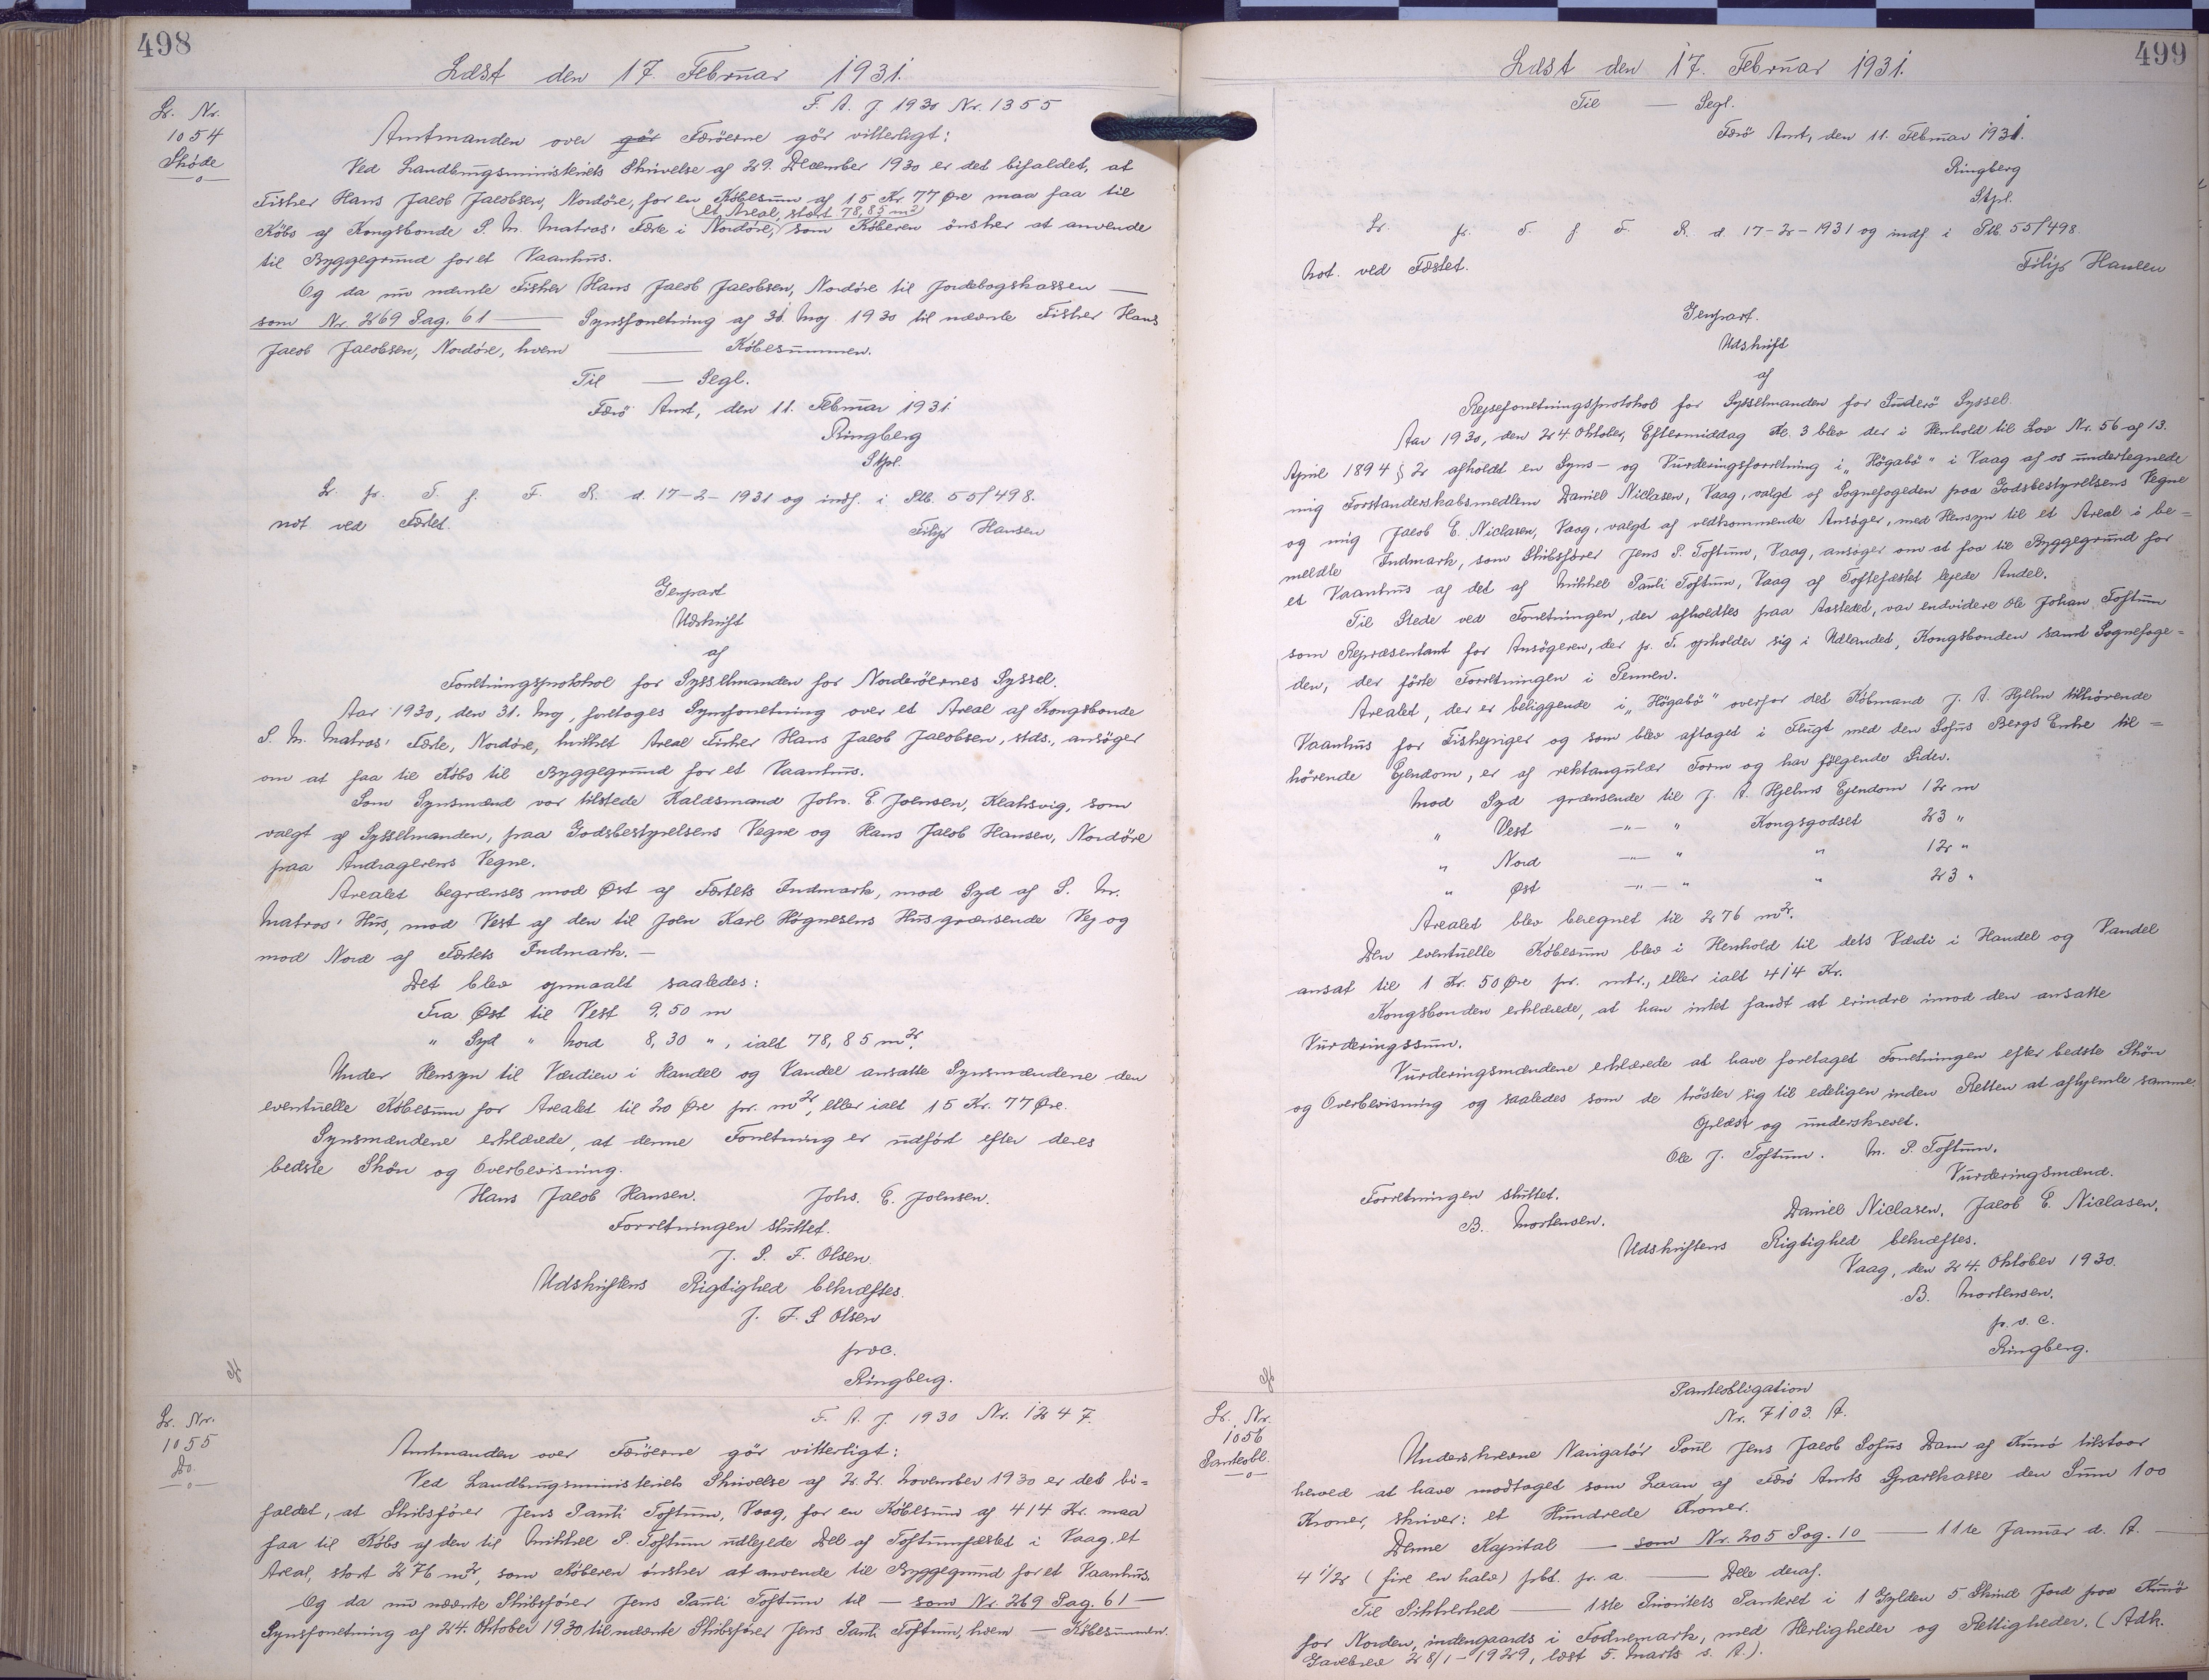 498
Læst den 17. Februar 1931.
F. A. J 1930 Nr. 1355
Lr. Nr.
1054
Skøde
Amtmanden over gör Færöerne gör vitterligt:
Ved Landbrugsministeriets Skrivelse af 29. December 1930 er det bifaldet, at
Fisker Hans Jacob Jacobsen, Nordöre, for en Købesum af 15 Kr. 77 Øre maa faa til
et Areal, stort 78,85 m2
Köbs af Kongsbonde S. M. Matras' Fæste i Nordöre, som Köberen önsker at anvende
til Byggegrund for et Vaanhus.
Og da nu nævnte Fisker Hans Jacob Jacobsen, Nordöre til Jordebogskassen —
som Nr. 269 Pag. 61 — Synsforretning af 31. Maj 1930 til nævnte Fisker Hans
Jacob Jacobsen, Nordöre, hvem — Köbesummen.
Til — Segl.
Færö Amt, den 11. Februar 1931.
Ringberg
Stpl.
Lr. fr. T. f. F. R. d. 17-2-1931 og indf. i Ptb. 55/498.
not. ved Fæstet. Filip Hansen
Genpart
Udskrift
af
Forretningsprotokol for Sysselmanden for Norderöernes Syssel.
Aar 1930, den 31. Maj, foretages Synsforretning over et Areal af Kongsbonde
S. M. Matras' Fæste, Nordöre, hvilket Areal Fisker Hans Jacob Jacobsen, stds., ansöger
om at faa til Köbs til Byggegrund for et Vaanhus.
Som Synsmænd var tilstede Kaldsmand Johs. E. Joensen, Klaksvig, som
valgt af Sysselmanden, paa Godsbestyrelsens Vegne og Hans Jacob Hansen, Nordöre
paa Andragerens Vegne.
Arealet begrænses mod Øst af Fæstets Indmark, mod Syd af S. M.
Matras' Hus, mod Vest af den til Joen Karl Högnesens Hus grænsende Vej og
mod Nord af Fæstets Indmark. —
Det blev opmaalt saaledes:
Fra Øst til Vest 9,50 m
" Syd " Nord 8,30 ", ialt 78,85 m2.
Under Hensyn til Værdien i Handel og Vandel ansatte Synsmændene den
eventuelle Købesum for Arealet til 20 Øre pr. m2, eller ialt 15 Kr. 77 Øre.
Synsmændene erklærede, at denne Forretning er udfört efter deres
bedste Skön og Overbevisning.
Hans Jacob Hansen. Johs. E. Joensen.
Forretningen sluttet.
J. P. F. Olsen.
Udskriftens Rigtighed bekræftes.
J. F. P Olsen
pvc.
Ringberg.
F. A. J. 1930 Nr. 1247.
Lr. Nr.
1055
Do
Amtmanden over Færöerne gör vitterligt:
Ved Landbrugsministeriets Skrivelse af 22. November 1930 er det bi-
faldet, at Skibsförer Jens Pauli Toftum, Vaag, for en Köbesum af 414 Kr. maa
faa til Köbs af den til Mikkel P. Toftum udlejede Del af Toftumfæstet i Vaag, et
Areal, stort 276 m2, som Köberen önsker at anvende til Byggegrund for et Vaanhus
Og da nu nævnte Skibsförer Jens Pauli Toftum til — som Nr. 269 Pag. 61 —
Synsforretning af 24. Oktober 1930 til nævnte Skibsförer Jens Pauli Toftum, hvem — Köbesummen.
499
Læst den 17. Februar 1931.
Til — Segl.
Færö Amt, den 11. Februar 1931.
Ringberg
Stpl.
Lr. fr. T. f F. R. d. 17-2-1931 og indf. i Ptb. 55/498.
Not. ved Fæstet. Filip Hansen
Genpart.
Udskrift
af
Rejseforretningsprotokol for Sysselmanden for Suderö Syssel.
Aar 1930, den 24. Oktober, Eftermiddag Kl. 3 blev der i Henhold til Lov Nr. 56 af 13.
April 1894 § 2 afholdt en Syns- og Vurderingsforretning i „Högabö" i Vaag af os undertegnede
mig Forstanderskabsmedlem Daniel Niclasen, Vaag, valgt af Sognefogeden paa Godsbestyrelsens Vegne
og mig Jacob E. Niclasen, Vaag, valgt af vedkommende Ansöger, med Hensyn til et Areal i be-
meldte Indmark, som Skibsförer Jens P. Toftum, Vaag, ansöger om at faa til Byggegrund for
et Vaanhus af det af Mikkel Pauli Toftum, Vaag af Toftefæstet lejede Andel.
Til Stede ved Forretningen, der afholdtes paa Aastedet, var endvidere Ole Johan Toftum
som Repræsentant for Ansögeren, der p. T. opholder sig i Udlandet, Kongsbonden samt Sognefoge-
den, der förte Forretningen i Pennen.
Arealet, der er beliggende i „Högabö" overfor det Købmand J. A. Hjelm tilhörende
Vaanhus for Fiskepiger og som blev aftaget i Flugt med den Sofus Bergs Enke til-
hörende Ejendom, er af rektangulær Form og har fölgende Sider.
Mod Syd grænsende til J. A. Hjelms Ejendom 12 m
" Vest —"— " Kongsgodset 23 "
" Nord —"— " " 12 "
" Øst —"— " " 23 "
Arealet blev beregnet til 276 m2.
Den eventuelle Köbesum blev i Henhold til dets Værdi i Handel og Vandel
ansat til 1 Kr. 50 Øre pr. mtr., eller ialt 414 Kr.
Kongsbonden erklærede, at han intet fandt at erindre imod den ansatte
Vurderingssum.
Vurderingsmændene erklærede at have foretaget Forretningen efter bedste Skön
og Overbevisning og saaledes som de tröster sig til edeligen inden Retten at afhjemle samme.
Oplæst og underskrevet.
Ole J. Toftum. M. P. Toftum.
Vurderingsmænd.
Forretningen sluttet. Daniel Niclasen. Jacob E. Niclasen.
B. Mortensen.
Udskriftens Rigtighed bekræftes.
Vaag, den 24. Oktober 1930.
B. Mortensen.
p. v. c.
Ringberg.
Panteobligation
Nr. 7103. A.
Lr. Nr.
1056
Panteobl.
Underskrevne Navigatör Poul Jens Jacob Sofus Dam af Kunö tilstaar
herved at have modtaget som Laan af Færö Amts Sparekasse den Sum 100
Kroner, skriver: et Hundrede Kroner.
Denne Kapital — som Nr. 205 Pag. 10 — 11te Januar d. A. —
4 1/2 (fire en halv) pct. p. a. — Dele deraf.
Til Sikkerhed — 1ste Prioritets Panteret i 1 Gylden 5 Skind Jord paa Kunö
for Norden, indengaards i Fodnemark, med Herligheder og Rettigheder. (Adk.
Gavebrev 28/1-1929, læst 5. Marts s. A.).